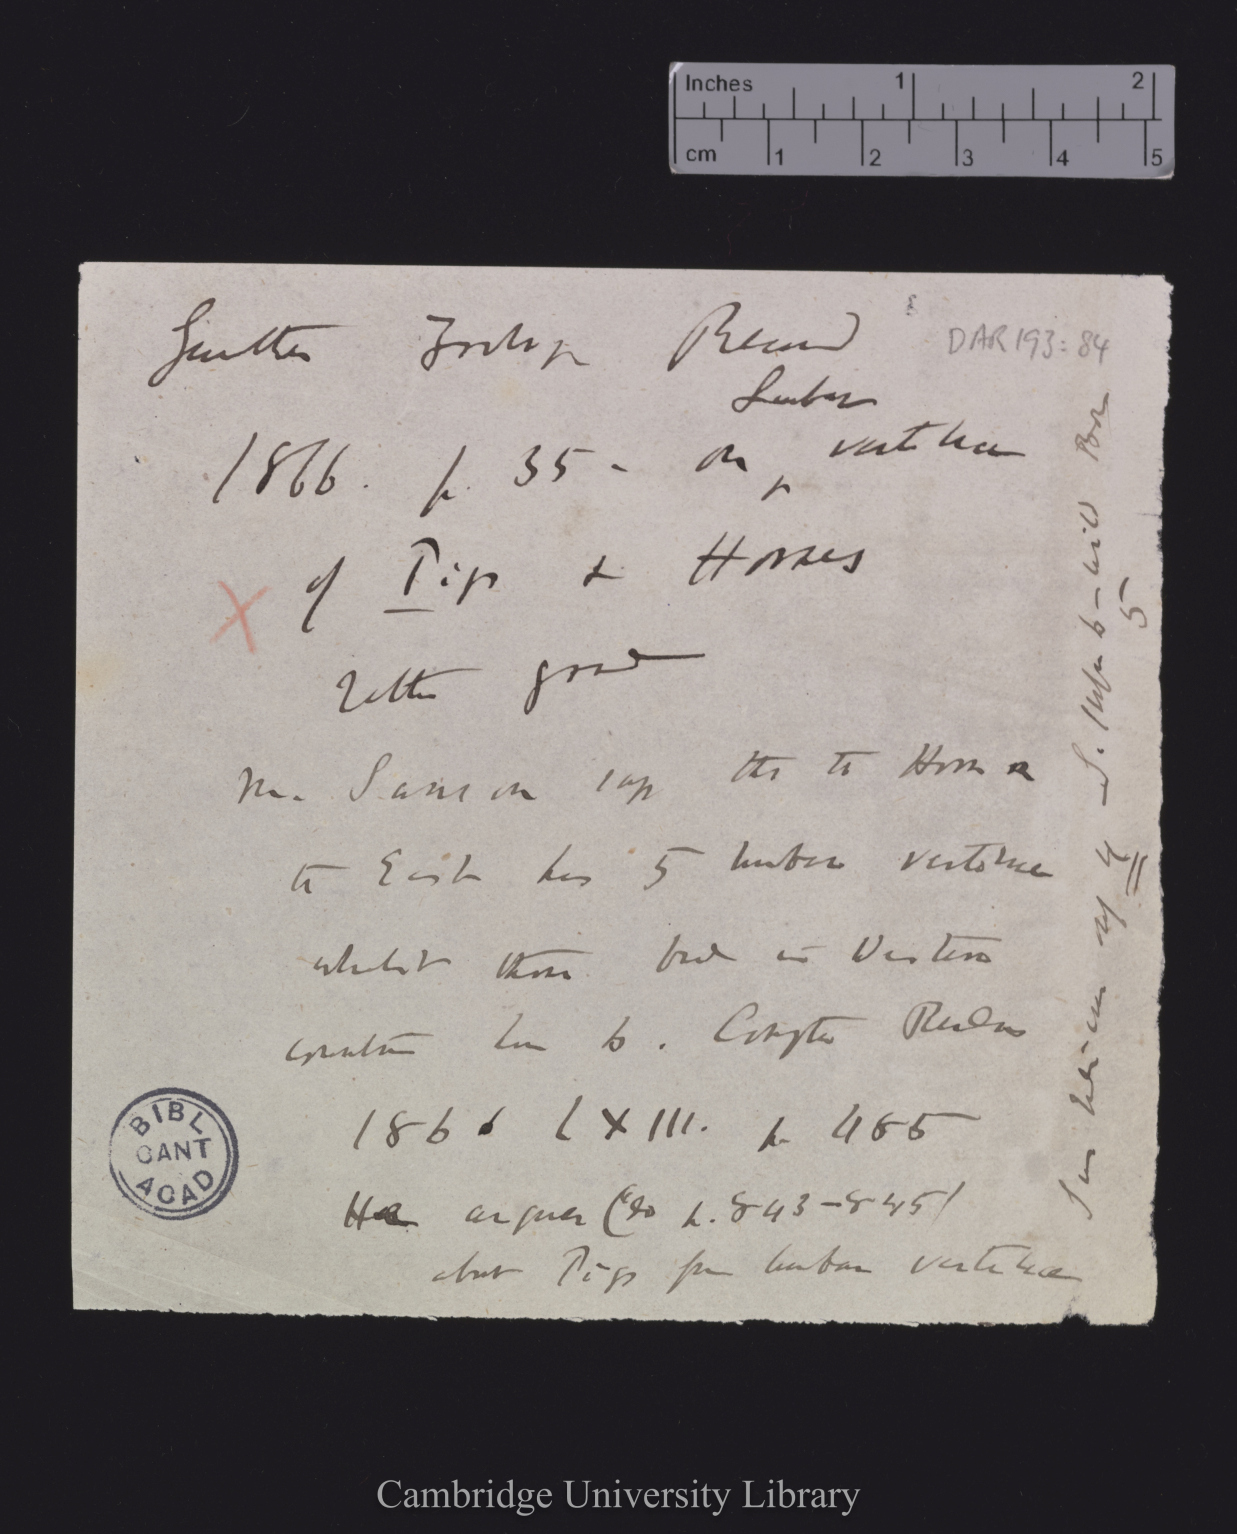 Inches 1 2
cm 1 2 3 4 5
Gunther Zoolog Record
DAR 193: 84
Lumbar
1866. p. 35 - on vertebrae
of Pigs & Horses
X
rather good
M. Sanson says the Horse
the East has 5 lumbar vertebrae
whilst those bred in Western
countries have 6. Comptes Rendus
1866 LXIII. p 485
He argues (do p. 843-845)
about Pigs from lumbar vertebrae
4 - S. 6 - wild Boar
5
BIBL
CANT
ACAD
Cambridge University Library